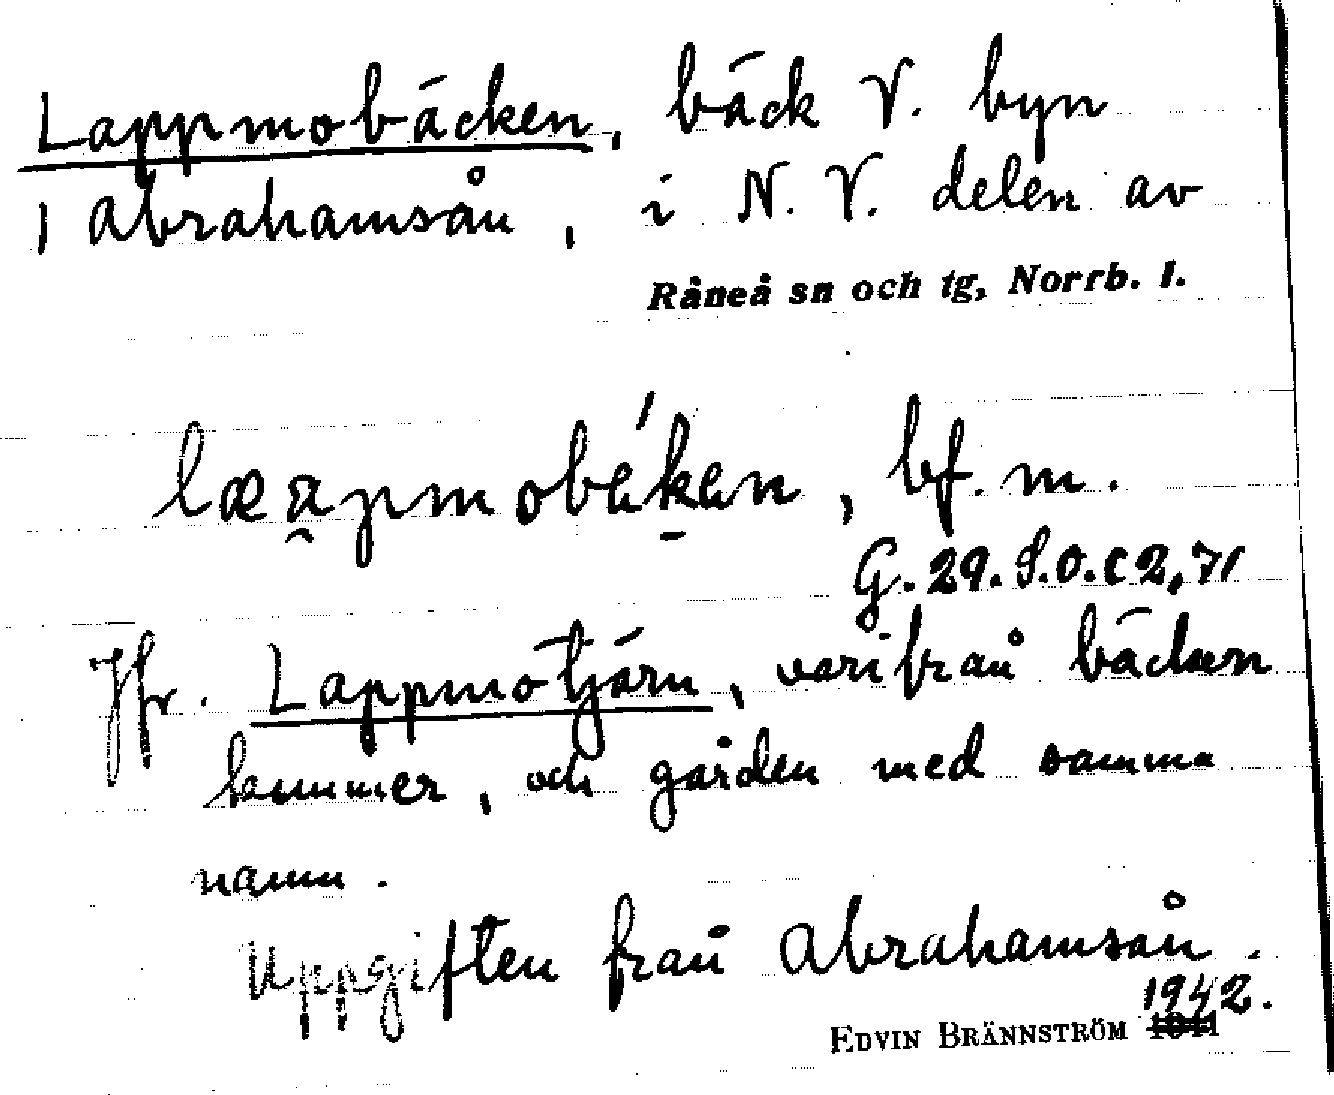 Lappmobäcken, bäck V. byn
i Abrahamsån, i N.V. delen av
Råneå sn och tg, Norrb. l.
bf. m.
G. 29. S.O. C 2, 71
Jfr. Lappmotjärn, varifrån bäcken
kommer, och gården med samma
namn.
Uppgiften från Abrahamsån.
1942.
EDVIN BRÄNNSTRÖM 1941